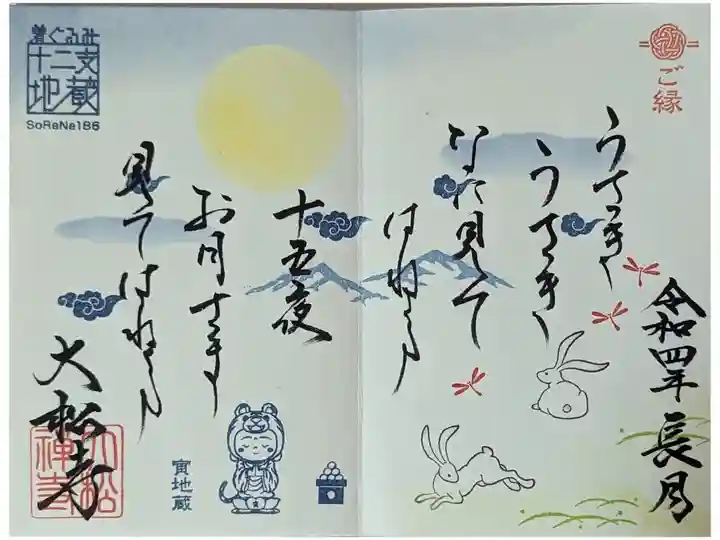 ご縁
令和四年 長月
うさぎ
うさぎ
なに見て
はねる
十五夜
お月さま
見てはねる
大松寺
着ぐるみ
十二支
地蔵
SoRaNa186
寅地蔵